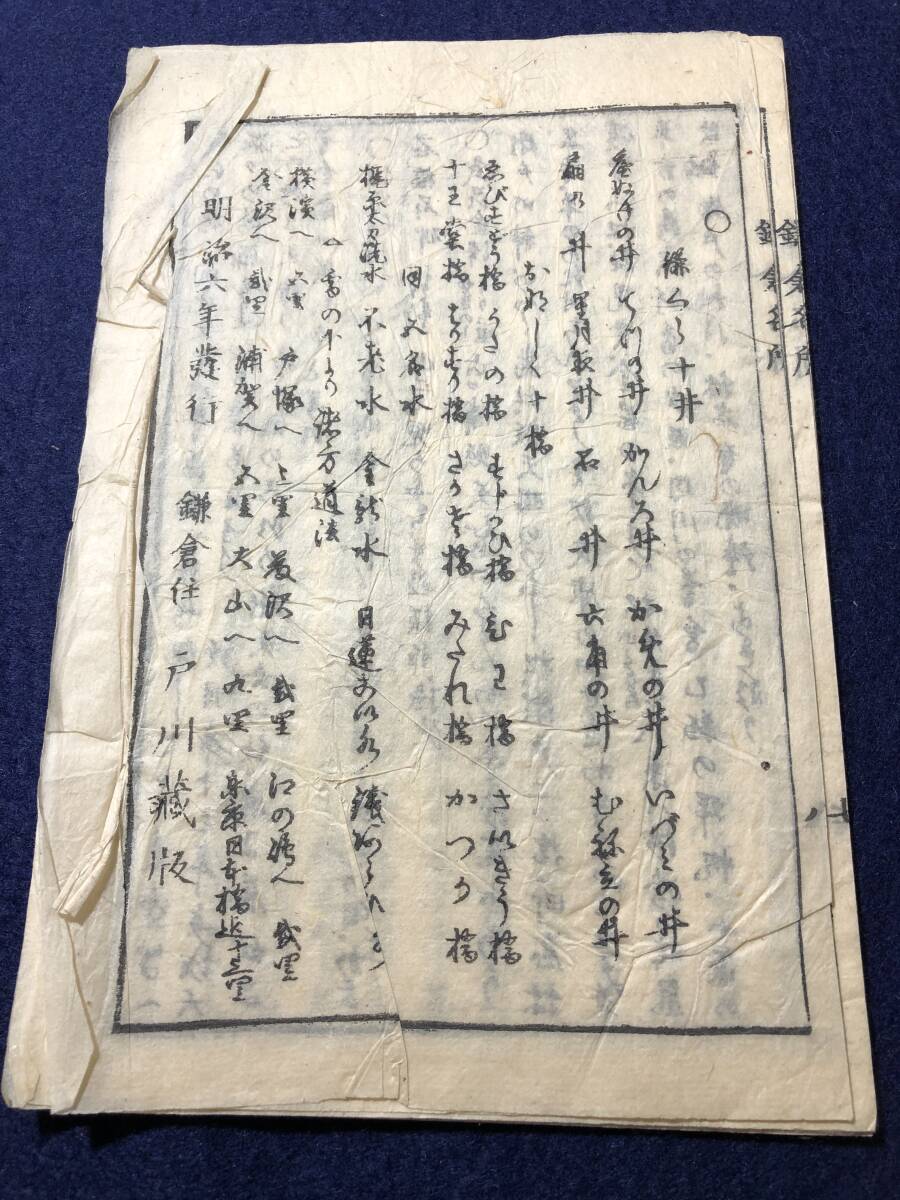 鎌くら十井
底ぬけの井 てつの井 かんろ井 かめの井 いづミの井
扇の井 星月夜井 石ノ井 六角の井 むねたての井
おなしく十橋
ゑびすどう橋 うたの橋 すじかひ橋 びわ橋 さいきやう橋
十王堂橋 はりすり橋 さかせ橋 みだれ橋 かつら橋
同 五名水
梶原太刀洗水 不老水 金龍水 日蓮水 銭洗水
雪の下より諸方道法
横濱へ 六里 戸塚へ 弐里 藤沢へ 弐里 江の嶋へ 弐里
金沢へ 弐里 浦賀へ 五里 大山へ 九里 東京日本橋迄十三里
明治六年發行 鎌倉住 戸川藏版
鎌倉名所
鎌倉名所
七
八